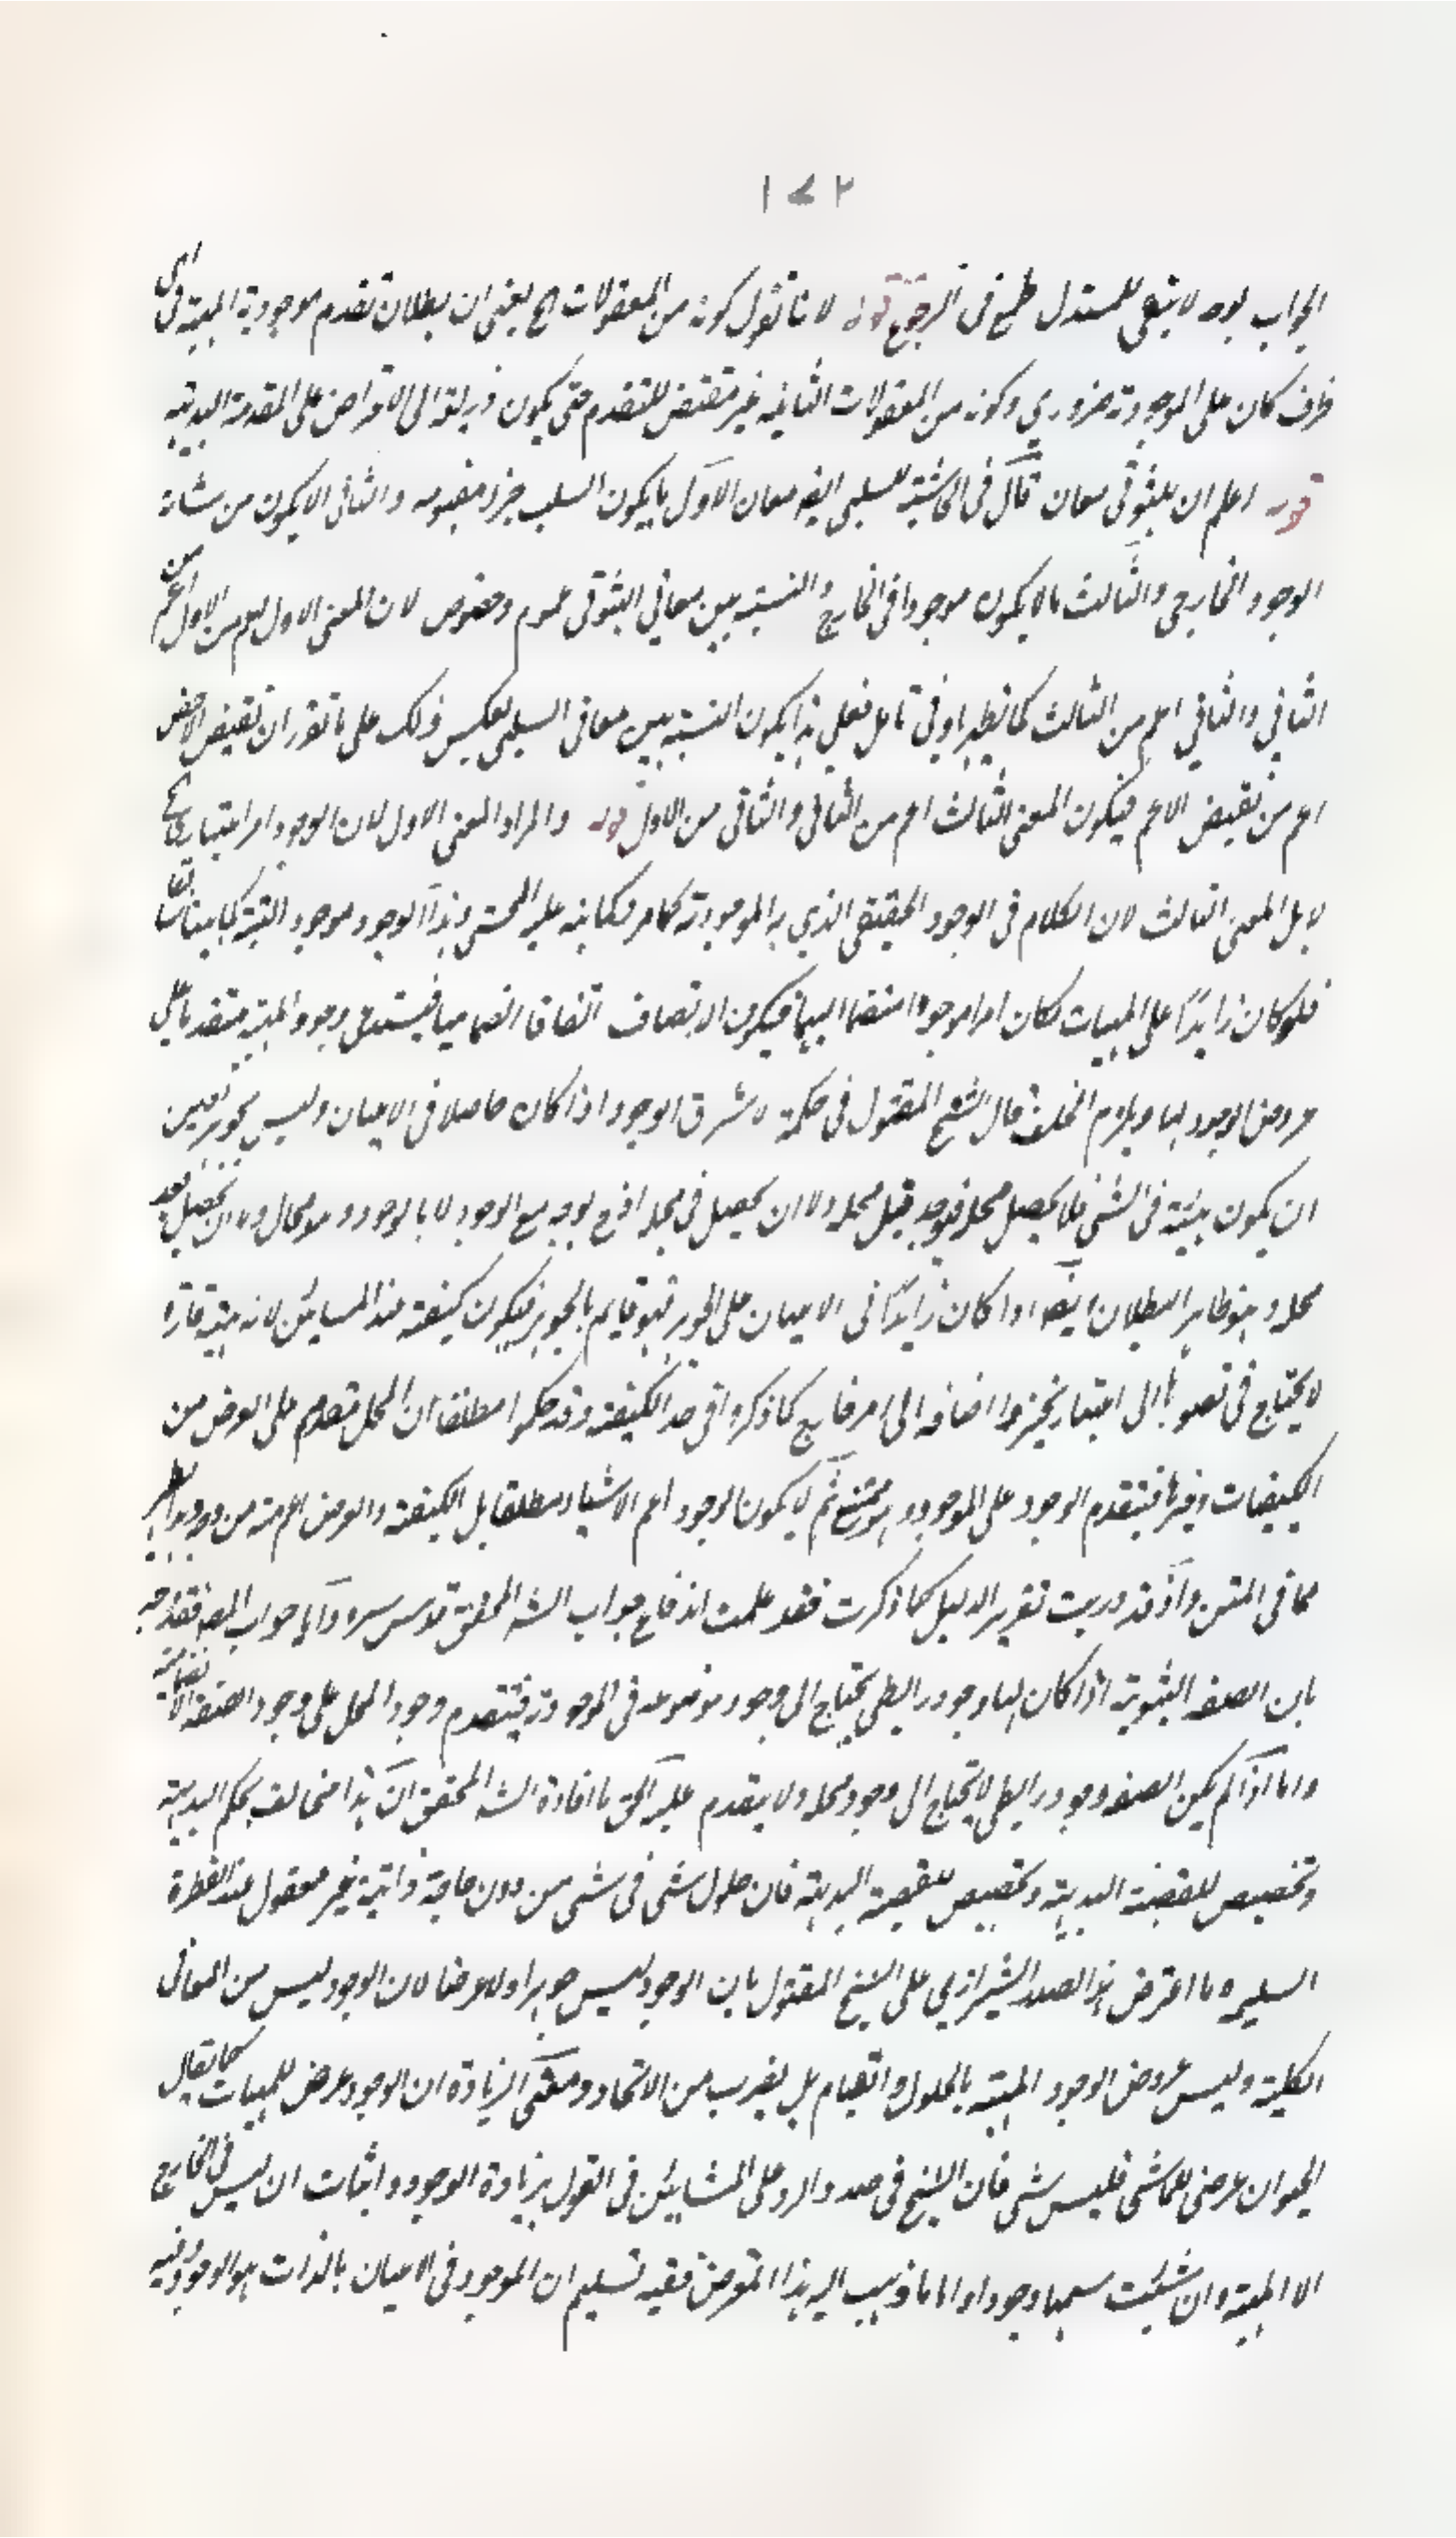 ١٧٢
الجواب بوجه لا يبقى للمستدل طمع فى قوله لا نا نقول كونه من المعقولات الخ يعنى ان بطلان تقدم موجودية المهية فى اى
ظرف كان على الموجودية ضرورى وكونه من المعقولات الثانية غير مقتض للتقدم حتى يكون ذريعة الى الاعتراض على المقدمة البديهية
قوله اعلم ان للثبوتى معان قال فى الحاشية للسلبى ايضا معان الاول ما يكون السلب جزء مفهومه والثانى لا يكون من شانه
الوجود الخارجى والثالث ما لا يكون موجودا فى الخارج والنسبة بين معانى الثبوتى عموم وخصوص لان المعنى الاول اعم من
الثانى والثانى اعم من الثالث كما يظهر بادنى تامل فعلى هذا يكون النسبة بين معانى السلبى بعكس ذلك على ما تقرر ان نقيض الاخص
اعم من نقيض الاعم فيكون المعنى الثالث اعم من الثانى والثانى من الاول قوله والمراد المعنى الاول لان الوجود امر اعتبارى
لا بل المعنى الثالث لان الكلام فى الوجود الحقيقى الذى به الموجودية كما مر فيما نبه عليه المحشى وهذا الوجود موجود البتة كما بينا سابقا
فلو كان زايدا على المهيات لكان امرا موجودا منضما اليها فيكون الاتصاف اتصافا انضماميا فيستدعى وجود المهية متقدما على
عروض الوجود لها ويلزم الخلف قال الشيخ المقتول فى حكمة الاشراق الوجود اذا كان حاصلا فى الاعيان وليس بجوهر فتعين
ان يكون هيئة فى الشئ فلا يحصل محله فيوجد قبل محله ولا ان يحصل فى محله اذ يوجد مع الوجود لا بالوجود وهو محال ولا ان يحصل بعد
محله وهو ظاهر البطلان ايضا اذا كان زايدا فى الاعيان على الجوهر فهو قايم بالجوهر فيكون كيفية عند المشائين لانه هيئة قارة
لا يحتاج فى تصورها الى اعتبار تجزء واضافة الى امر خارج كما ذكروا فى حد الكيفية وقد حكموا مطلقا ان المحل متقدم على العرض من
الكيفيات وغيرها فيتقدم الوجود على الموجود وهو ممتنع ثم لا يكون الوجود اعم الاشياء مطلقا بل الكيفية والعرض اعم منه من وجه
مما فى المتن واذ قد دريت تقرير الدليل كما ذكرت فقد علمت اندفاع جواب الشه المحقق قدس سره واما جواب المص
بان الصفة الثبوتية اذا كان لها وجود رابطى يحتاج الى وجود موضوعه فى الموجودية فيتقدم وجود المحل على وجود الصفة الانضمامية
واما اذا لم يكن للصفة وجود رابطى لا يحتاج الى وجود محله ولا يتقدم عليه الحق ما افاده الشه المحقق ان هذا مخالف لحكم البديهة
وتخصيص للقضية البديهية وتخصيص للقضية البديهية فان حلول شئ فى شئ من دون حاجة ذاتية غير معقول عند الفطرة
السليمة وما اعترض به الصدر الشيرازى على الشيخ المقتول بان الوجود ليس جوهرا ولا عرضا لان الوجود ليس من المعانى
الكلية وليس عروض الوجود المهية بالحلول والقيام بل بضرب من الاتحاد ومعنى الزيادة ان الوجود عرض للمهيات كما يقال
الحيوان عرضى للماشى فليس بشئ فان الشيخ فى صدد الرد على المشائين فى القول بزيادة الوجود واثبات ان ليس فى الخارج
الا المهية وان شئت سمها وجودا واما ما ذهب اليه هذا المعترض ففيه تسليم ان الموجود فى الاعيان بالذات هو الوجود وفيه